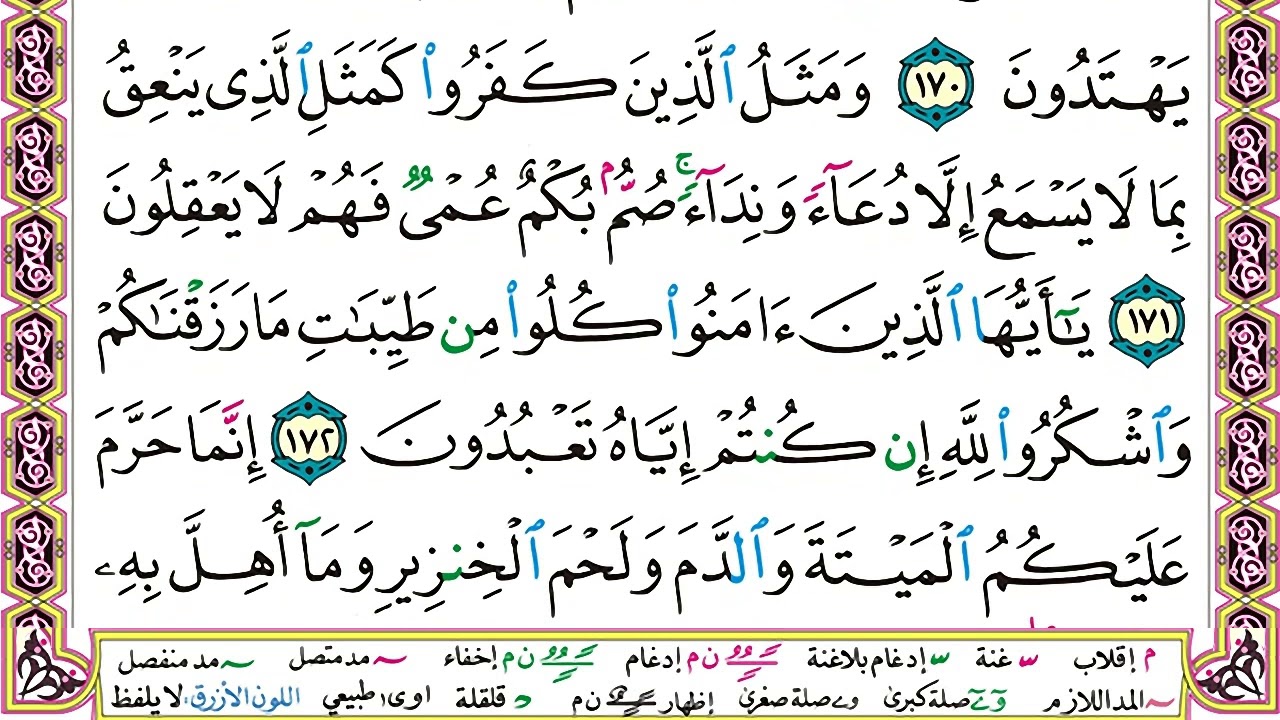 يَهْتَدُونَ ١٧٠ وَمَثَلُ ٱلَّذِينَ كَفَرُوا۟ كَمَثَلِ ٱلَّذِى يَنْعِقُ
بِمَا لَا يَسْمَعُ إِلَّا دُعَآءً وَنِدَآءً ۚ صُمٌّۢ بُكْمٌ عُمْىٌ فَهُمْ لَا يَعْقِلُونَ
١٧١ يَـٰٓأَيُّهَا ٱلَّذِينَ ءَامَنُوا۟ كُلُوا۟ مِن طَيِّبَـٰتِ مَا رَزَقْنَـٰكُمْ
وَٱشْكُرُوا۟ لِلَّهِ إِن كُنتُمْ إِيَّاهُ تَعْبُدُونَ ١٧٢ إِنَّمَا حَرَّمَ
عَلَيْكُمُ ٱلْمَيْتَةَ وَٱلدَّمَ وَلَحْمَ ٱلْخِنزِيرِ وَمَآ أُهِلَّ بِهِۦ
م إقلاب س غنة س إدغام بلاغنة ن م إدغام ن م إخفاء مد متصل مد منفصل
المد اللازم صلة كبرى صلة صغرى إظهار ن م د قلقلة اوى طبيعي اللون الأزرق: لا يلفظ